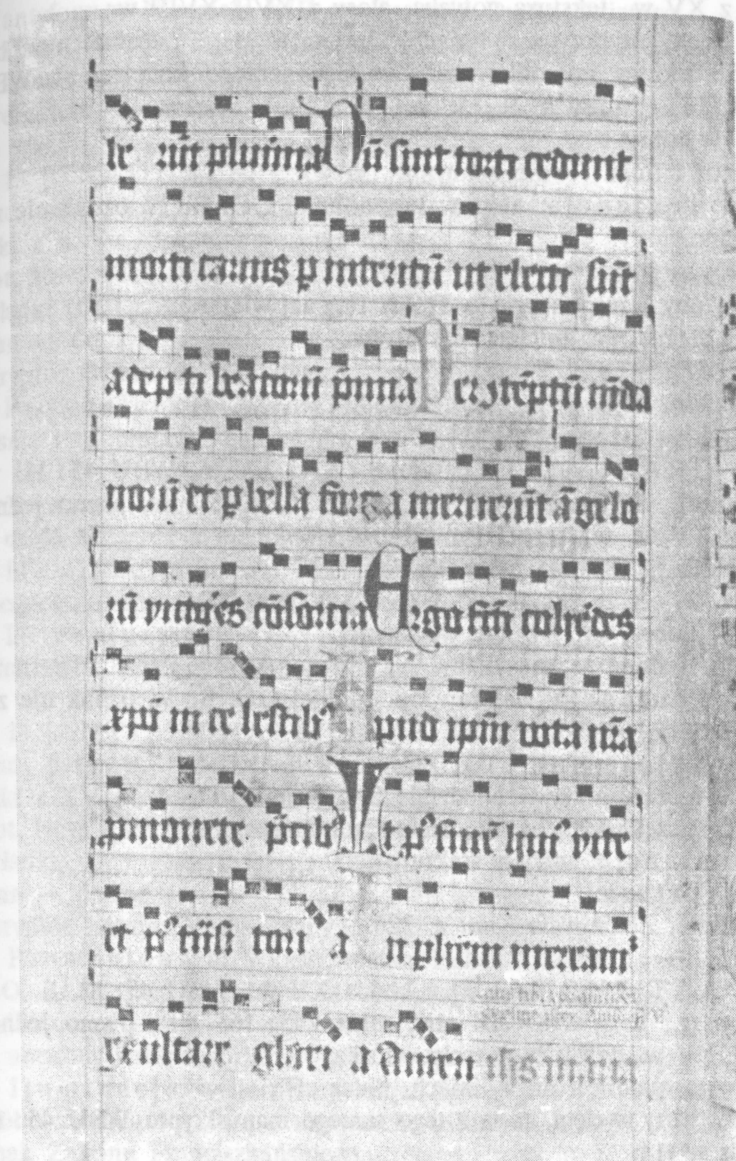 le rūt pluima Dū sint torti cedunt
morti carnis p interitū ut electi sūt
adep ti beatorū p̄mia Per 9tēptū mūda
norū et p bella fortia meruerūt āgelo
rū victōes cōsorcia Ergo fiūt cohēdes
xpī in ce lestib⁹ Apud ipm̄ vota nr̄a
pmouete p̄cib⁹ Ut p⁹ finē hui⁹ vite
et p⁹ trāsi tori a In phem meream⁹
exultare glori a Amen ihs maria